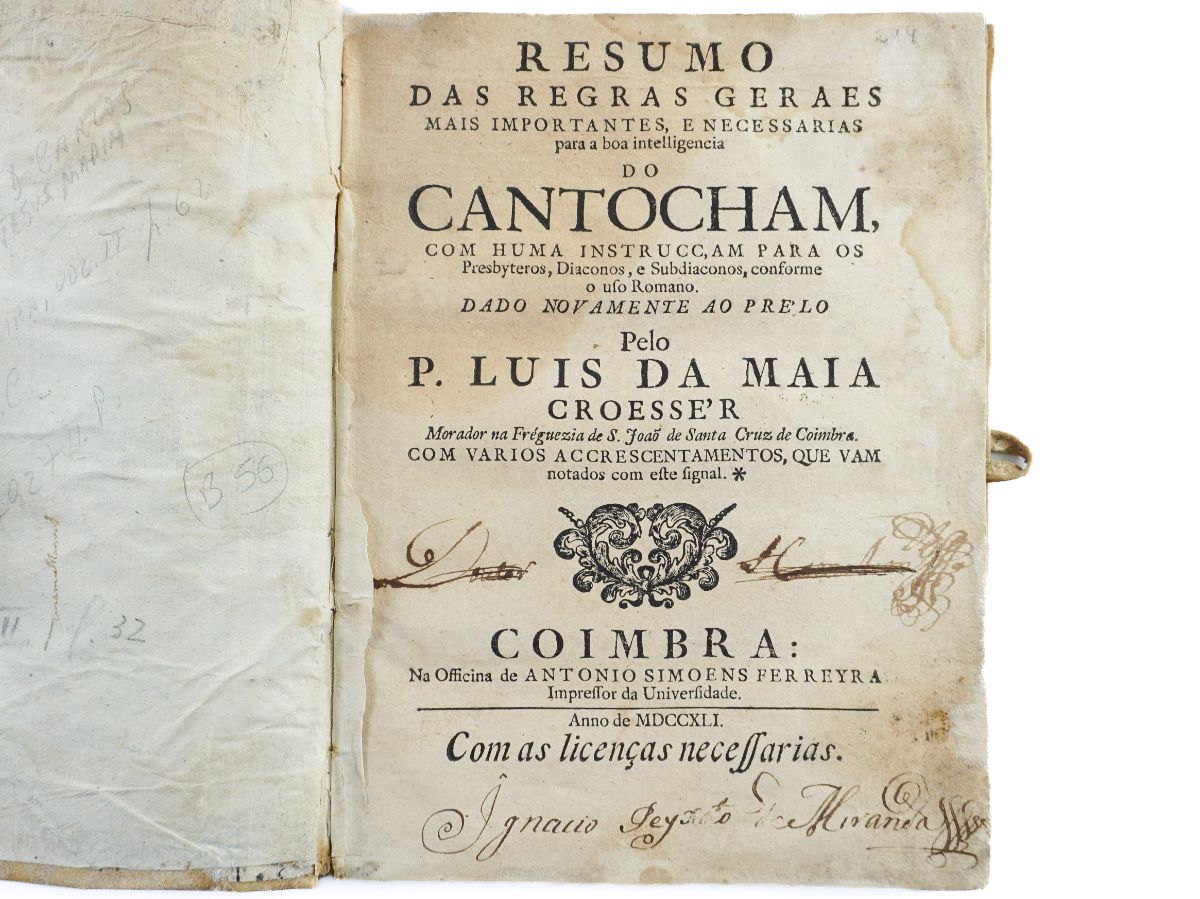 D. CARLOS
JESUS MARIA
VOL. II p. 62
B 56
p. 32
RESUMO
DAS REGRAS GERAES
MAIS IMPORTANTES, E NECESSARIAS
para a boa intelligencia
DO
CANTOCHAM,
COM HUMA INSTRUCC,AM PARA OS
Presbyteros, Diaconos, e Subdiaconos, conforme
o uſo Romano.
DADO NOVAMENTE AO PRE'LO
Pelo
P. LUIS DA MAIA
CROESSE'R
Morador na Fréguezia de S. Joaõ de Santa Cruz de Coimbra.
COM VARIOS ACCRESCENTAMENTOS, QUE VAM
notados com eſte ſignal. *
COIMBRA:
Na Officina de ANTONIO SIMOENS FERREYRA
Impreſſor da Univerſidade.
Anno de MDCCXLI.
Com as licenças neceſſarias.
Ignacio Peyxoto de Miranda